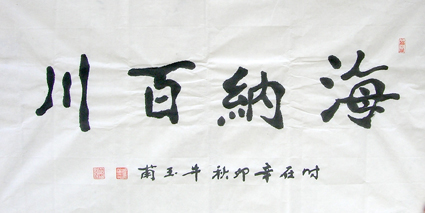 海納百川
时在辛卯秋牛玉蘭